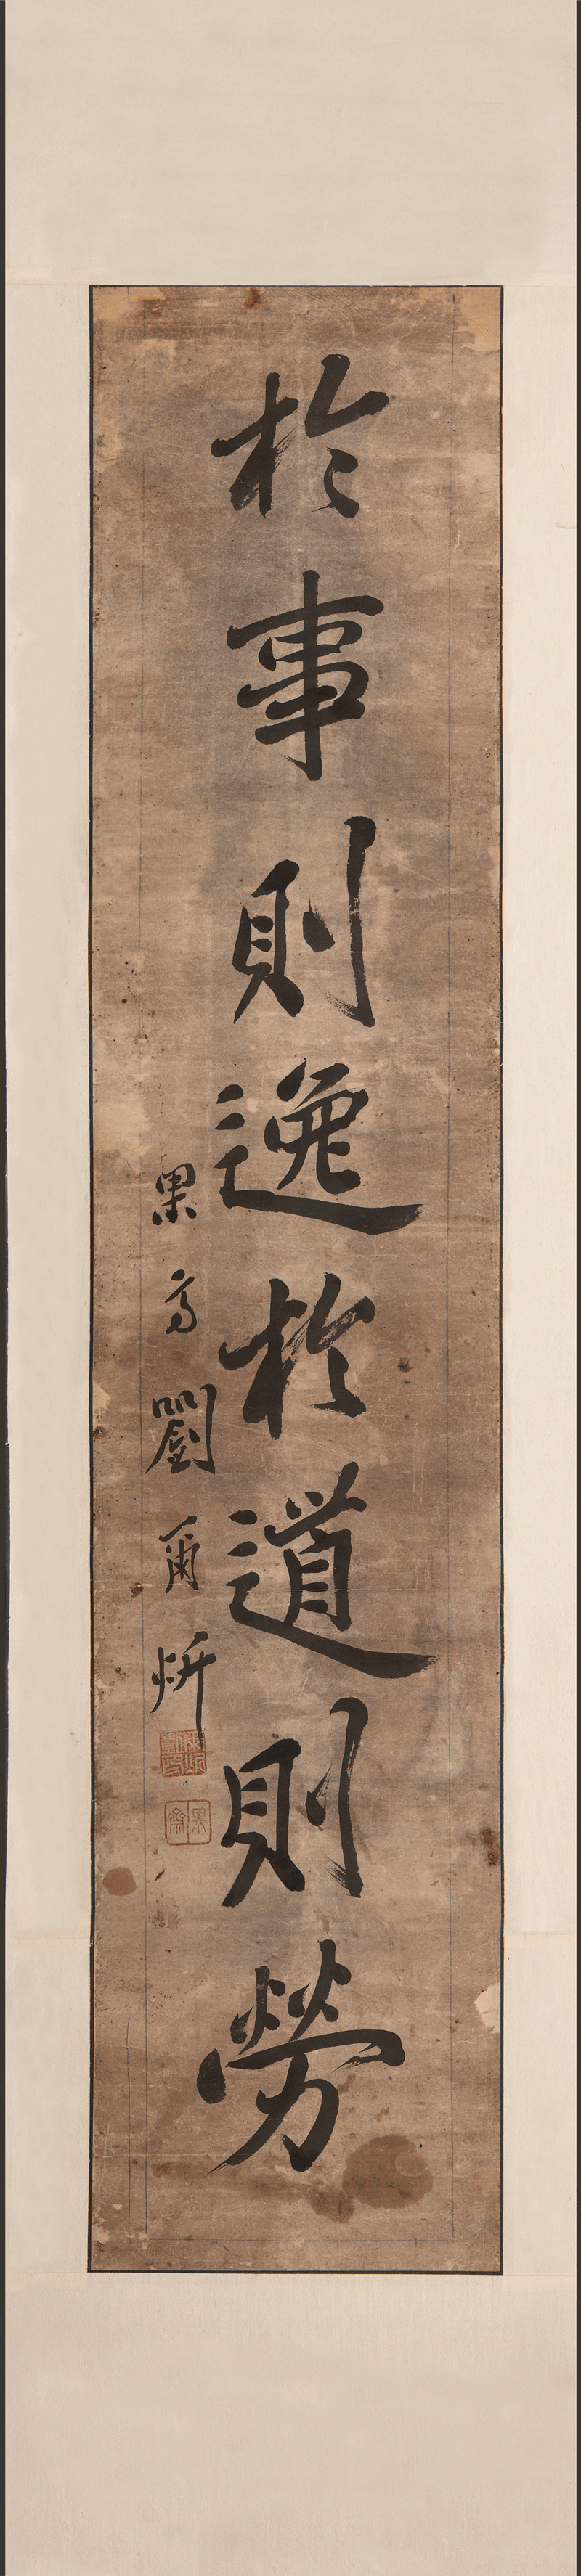 於事則逸於道則勞
果齋劉爾炘